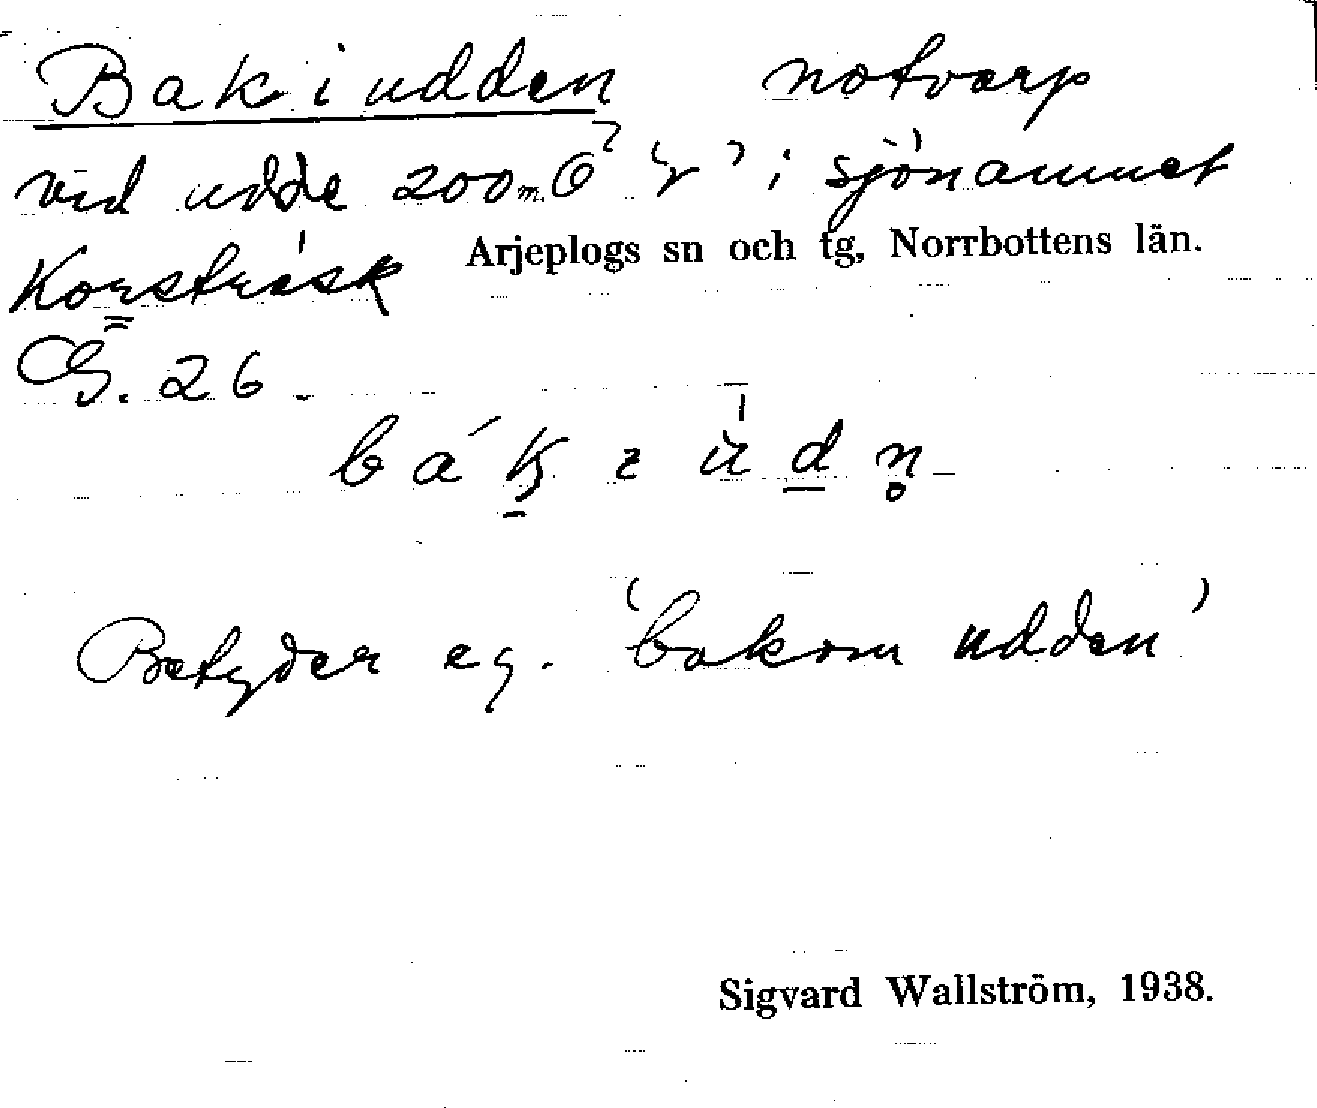 Bak i udden notvarp
vid udde 200 m. O 'r' i sjönamnet
Korsträsk Arjeplogs sn och tg, Norrbottens län.
G. 26
Betyder eg. 'bakom udden'
Sigvard Wallström, 1938.